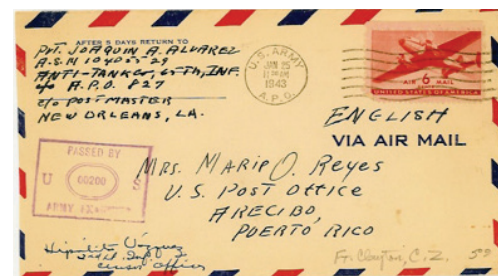 AFTER 5 DAYS RETURN TO
PVT. JOAQUIN A. ALVAREZ
A.S.N 10405529
ANTI-TANK CO, 65TH, INF.
c/o A.P.O. 827
c/o POSTMASTER
NEW ORLEANS, LA.
U.S. ARMY
JAN 25
1943
A.P.O.
AIR 6 MAIL
UNITED STATES OF AMERICA
ENGLISH
VIA AIR MAIL
PASSED BY
U 00200 S
ARMY
MRS. MARIP O. Reyes
U.S. POST OFFICE
ARECIBO,
PUERTO RICO
Hipolito Vázquez
censor officer
Ft. Clayton, C.Z. 59